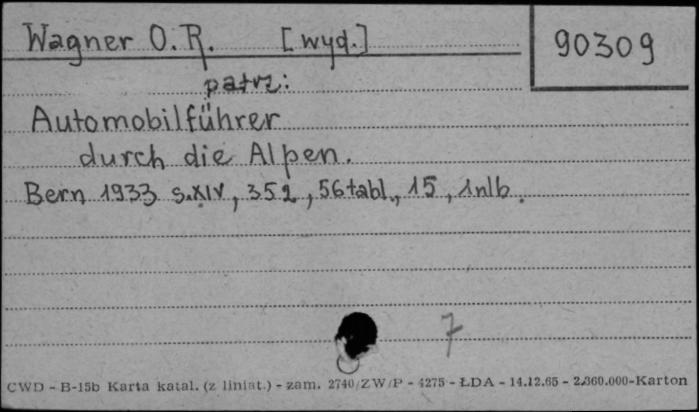 Wagner O. R. [wyd.]
90309
patrz:
Automobilführer
durch die Alpen.
Bern 1933 s.XIV, 352, 56 tabl., 15, 1nlb.
7
CWD - B-15b Karta katal. (z liniat.) - zam. 2740/ZW/P - 4275 - ŁDA - 14.12.65 - 2.360.000-Karton